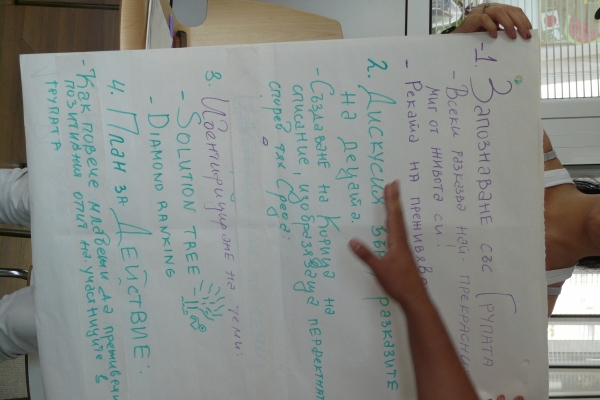 1. Запознаване със Групата
- Всеки разказва най-прекрасния
миг от живота си..
- Реката на преживява
2. Дискусия върху разказите
на децата.
- Създаване на Корица на
списание, изобразяваща перфектната
според тях среда:
3. Идентифициране на теми:
- SOLUTION TREE
- DIAMOND RANKING
4. План за Действие:
- Как повече младежи да преживеят
позитивния опит на участниците в
групата